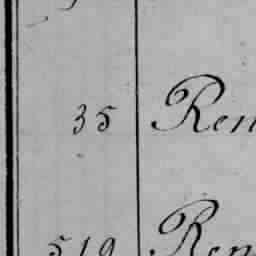 35 Ren
519 Ren